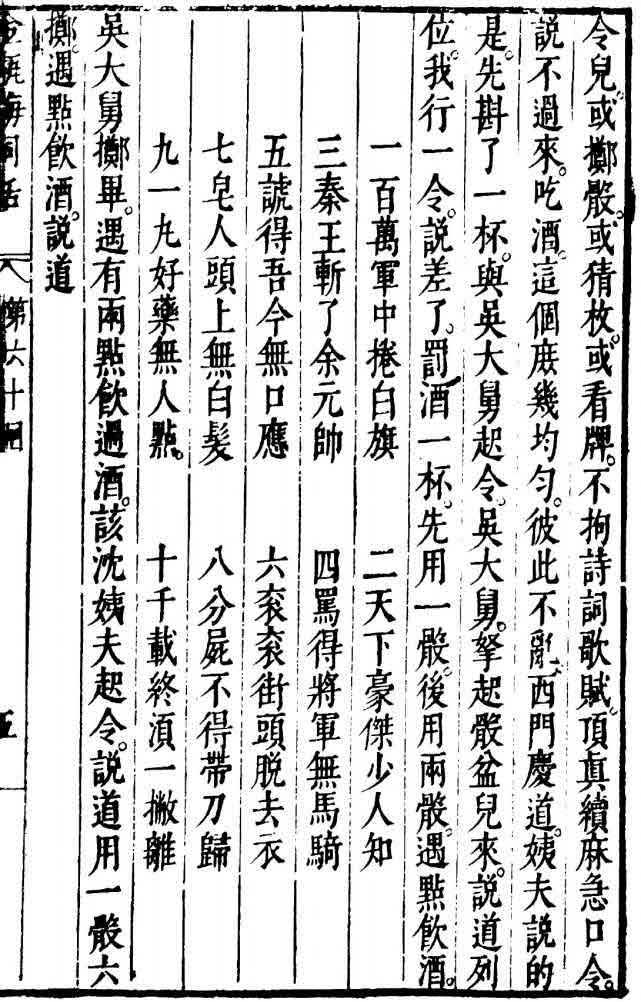 令兒。或擲骰。或猜枚。或看牌。不拘詩詞歌賦。頂真續麻急口令。
說不過來。吃酒。這個庻幾均匀。彼此不亂。西門慶道。姨夫說的
是。先斟了一杯。與吳大舅起令。吳大舅。拏起骰盆兒來。說道列
位。我行一令。說差了。罰酒一杯。先用一骰。後用兩骰。遇點飲酒。
一百萬軍中捲白旗　二天下豪傑少人知
三秦王斬了余元帥　四罵得將軍無馬騎
五諕得吾今無口應　六衮衮街頭脫去衣
七皂人頭上無白髮　八分屍不得帶刀歸
九一丸好藥無人點。　十千載終須一撇離
吳大舅擲畢。遇有兩點飲過酒。該沈姨夫起令。說道用一骰六
擲。遇點飲酒。說道
第六十回　五